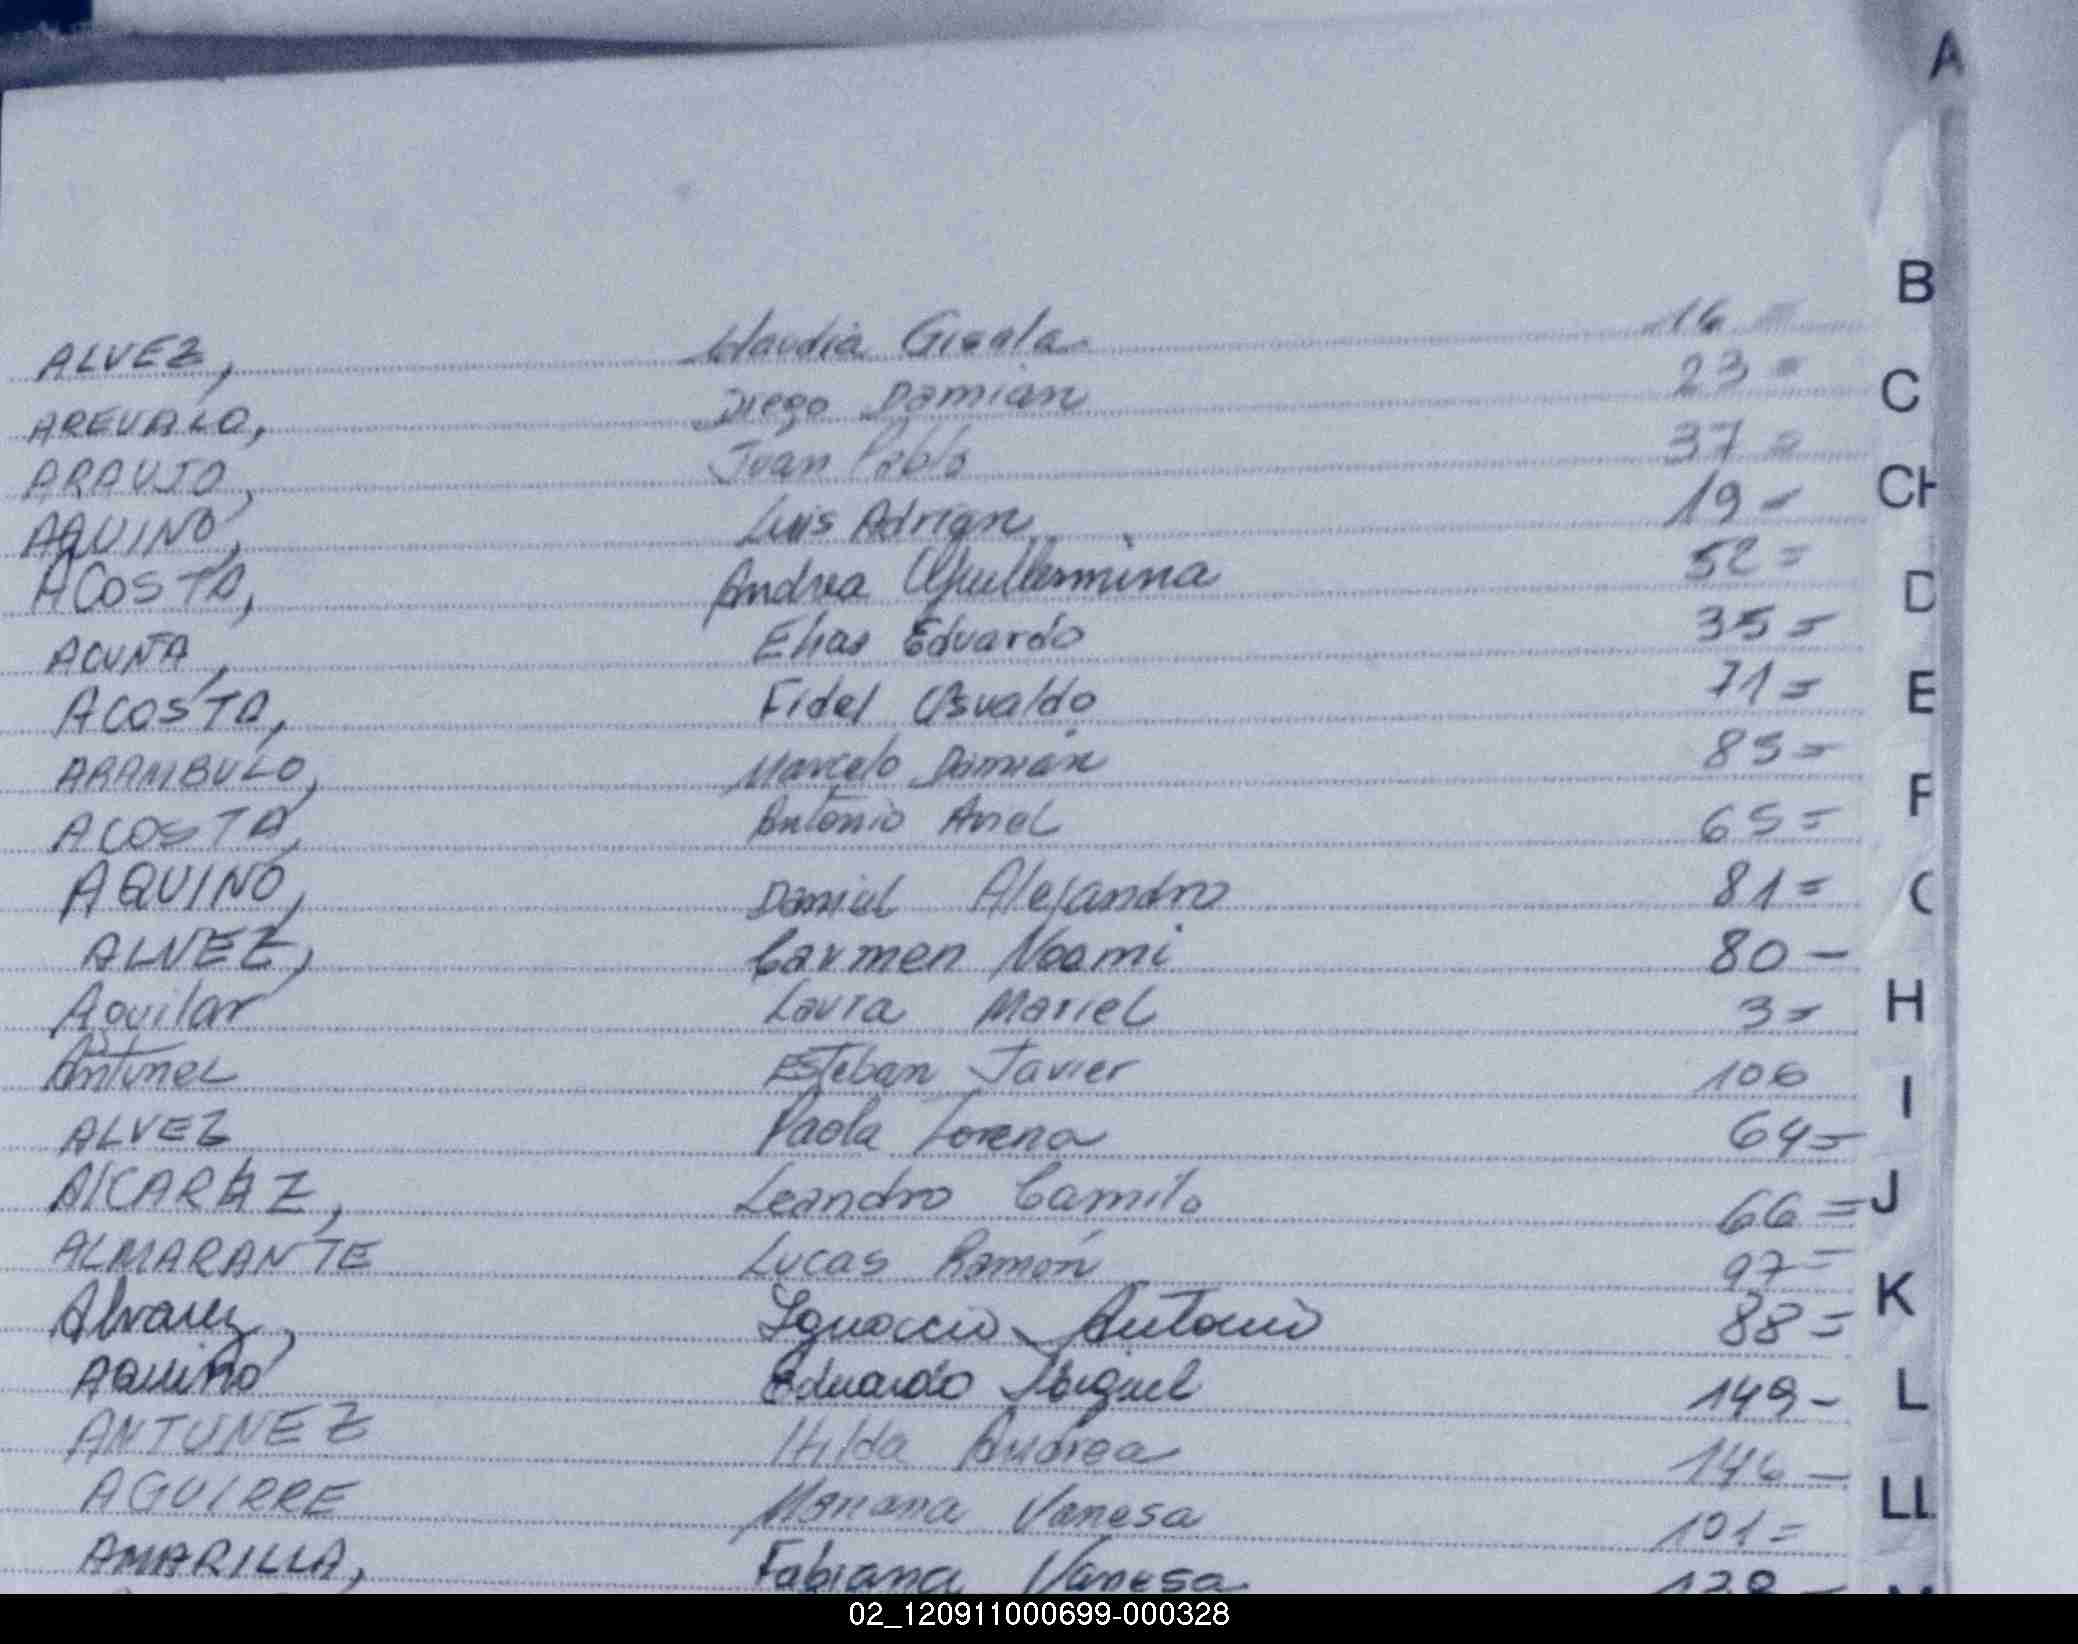 A
B
ALVEZ, Claudia Gisela 16 =
AREVALO, Diego Damián 23 =
C
ARAUJO, Juan Pablo 37 =
AQUINO, Luis Adrian 19 =
CH
ACOSTA, Andrea Guillermina 52 =
D
ACUÑA, Elias Eduardo 35 =
ACOSTA, Fidel Osvaldo 71 =
E
ARAMBULO, Marcelo Damián 85 =
F
ACOSTA, Antonio Ariel 65 =
AQUINO, Daniel Alejandro 81 =
ALVEZ, Carmen Noemi 80 -
H
Aguilar Laura Mariel 3 =
Antunez Esteban Javier 106
I
ALVEZ Paola Lorena 64 =
ALCARAZ, Leandro Camilo 66 =
J
ALMARANTE Lucas Ramón 97 =
K
Alvarez, Ignacio Antonio 88 =
AQUINO Eduardo Miguel 149 -
L
ANTUNEZ Hilda Andrea 146 -
AGUIRRE Mariana Vanesa 101 =
LL
AMARILLA, Fabiana Vanesa 138 -
02_120911000699-000328